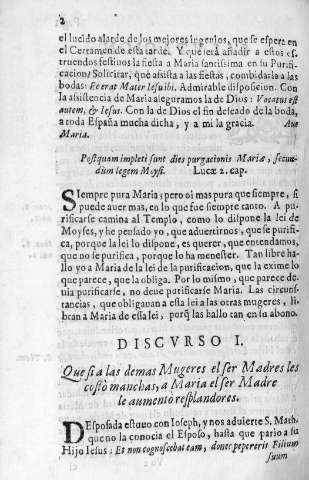 2
el lucido alarde de los mejores ingenios, que se espera en
el Certamen de esta tarde. Y què serà añadir a estos es-
truendos festiuos la fiesta a Maria santissima en su Purifi-
cacion? Solicitar, què assista a las fiestas, combidarla a las
bodas: Et erat Mater Iesu ibi. Admirable disposicion. Con
la assistencia de Maria aseguramos la de Dios: Vocatus est
autem, & Iesus. Con la de Dios el fin deseado de la boda,
a toda España mucha dicha, y a mi la gracia. Aue
Maria.
Postquam impleti sunt dies purgacionis Mariæ, secun-
dum legem Moysi. Lucæ 2. cap.
SIempre pura Maria; pero oi mas pura que siempre, si
puede auer mas, en lo que fue siempre tanto. A pu-
rificarse camina al Templo, como lo dispone la lei de
Moyses, y he pensado yo, que aduertirnos, que se purifi-
ca, porque la lei lo dispone, es querer, que entendamos,
que no se purifica, porque lo ha menester. Tan libre ha-
llo yo a Maria de la lei de la purificacion, que la exime lo
que parece, que la obliga. Por lo mismo, que parece de-
uia purificarse, no deue purificarse Maria. Las circuns-
tancias, que obligauan a esta lei a las otras mugeres, li-
bran a Maria de essa lei, porq̃ las hallo tan en su abono.
DISCVRSO I.
Que si a las demas Mugeres el ser Madres les
costò manchas, a Maria el ser Madre
le aumentò resplandores.
DEsposada estuuo con Ioseph, y nos aduierte S. Math.
que no la conocia el Esposo, hasta que pario a su
Hijo Iesus: Et non cognoscebat eam, donec pepererit Filium
suum